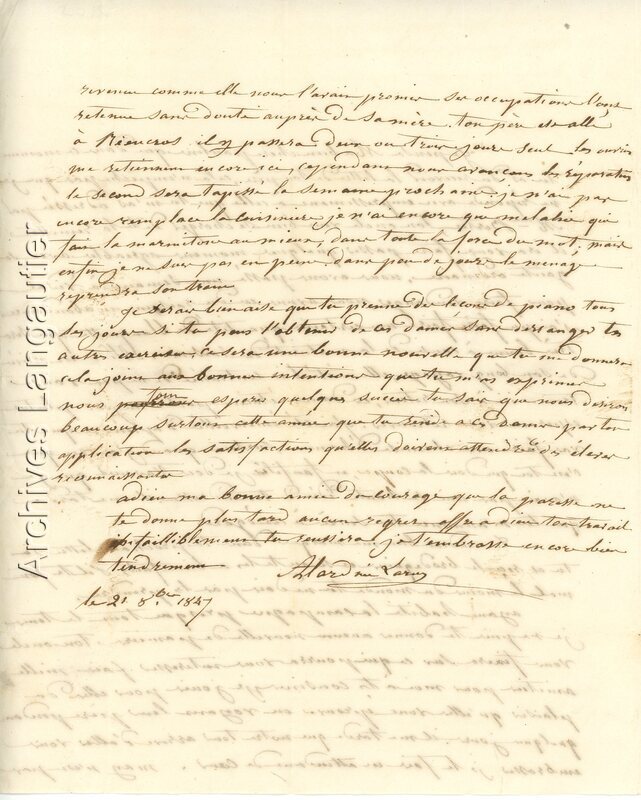 revenue comme elle nous l'avais promier ses occupations l'ont
retenue sans doute auprès de sa mère, ton père est allé
à Réaucros il y passera deux ou trois jours seul les ouvriers
me retiennent encore ici, cependant nous avançons les réparations
le second sera tapissé la semaine prochaine je n'ai pas
encore remplacé la cuisinière je n'ai encore que mélanie qui
fait la marmitone au mieux, dans toute la force du mot, mais
enfin je ne suis pas en peine dans peu de jours le ménage
reprendra son train
Je serai bien aise que tu prenne des leçons de piano tous
les jours si tu peus l'obtenir de ces dames sans derranger tes
autres exercices, ce sera une bonne nouvelle que tu me donneras
cela joint aux bonnes intentions que tu m'as exprimer
nous fera espérer quelques succès tu sais que nous désirons
beaucoup surtout cette année que tu rende à ces dames par ton
application les satisfactions qu'elles doivent attendre des élèves
reconaissantes
adieu ma bonne amie du courage que la paresse ne
te donne plus tard aucun regret offre a dieu ton travail
infailliblement tu réussira je t'embrasse encore bien
tendrement
le 21 8.bre 1847
Archives Langautier